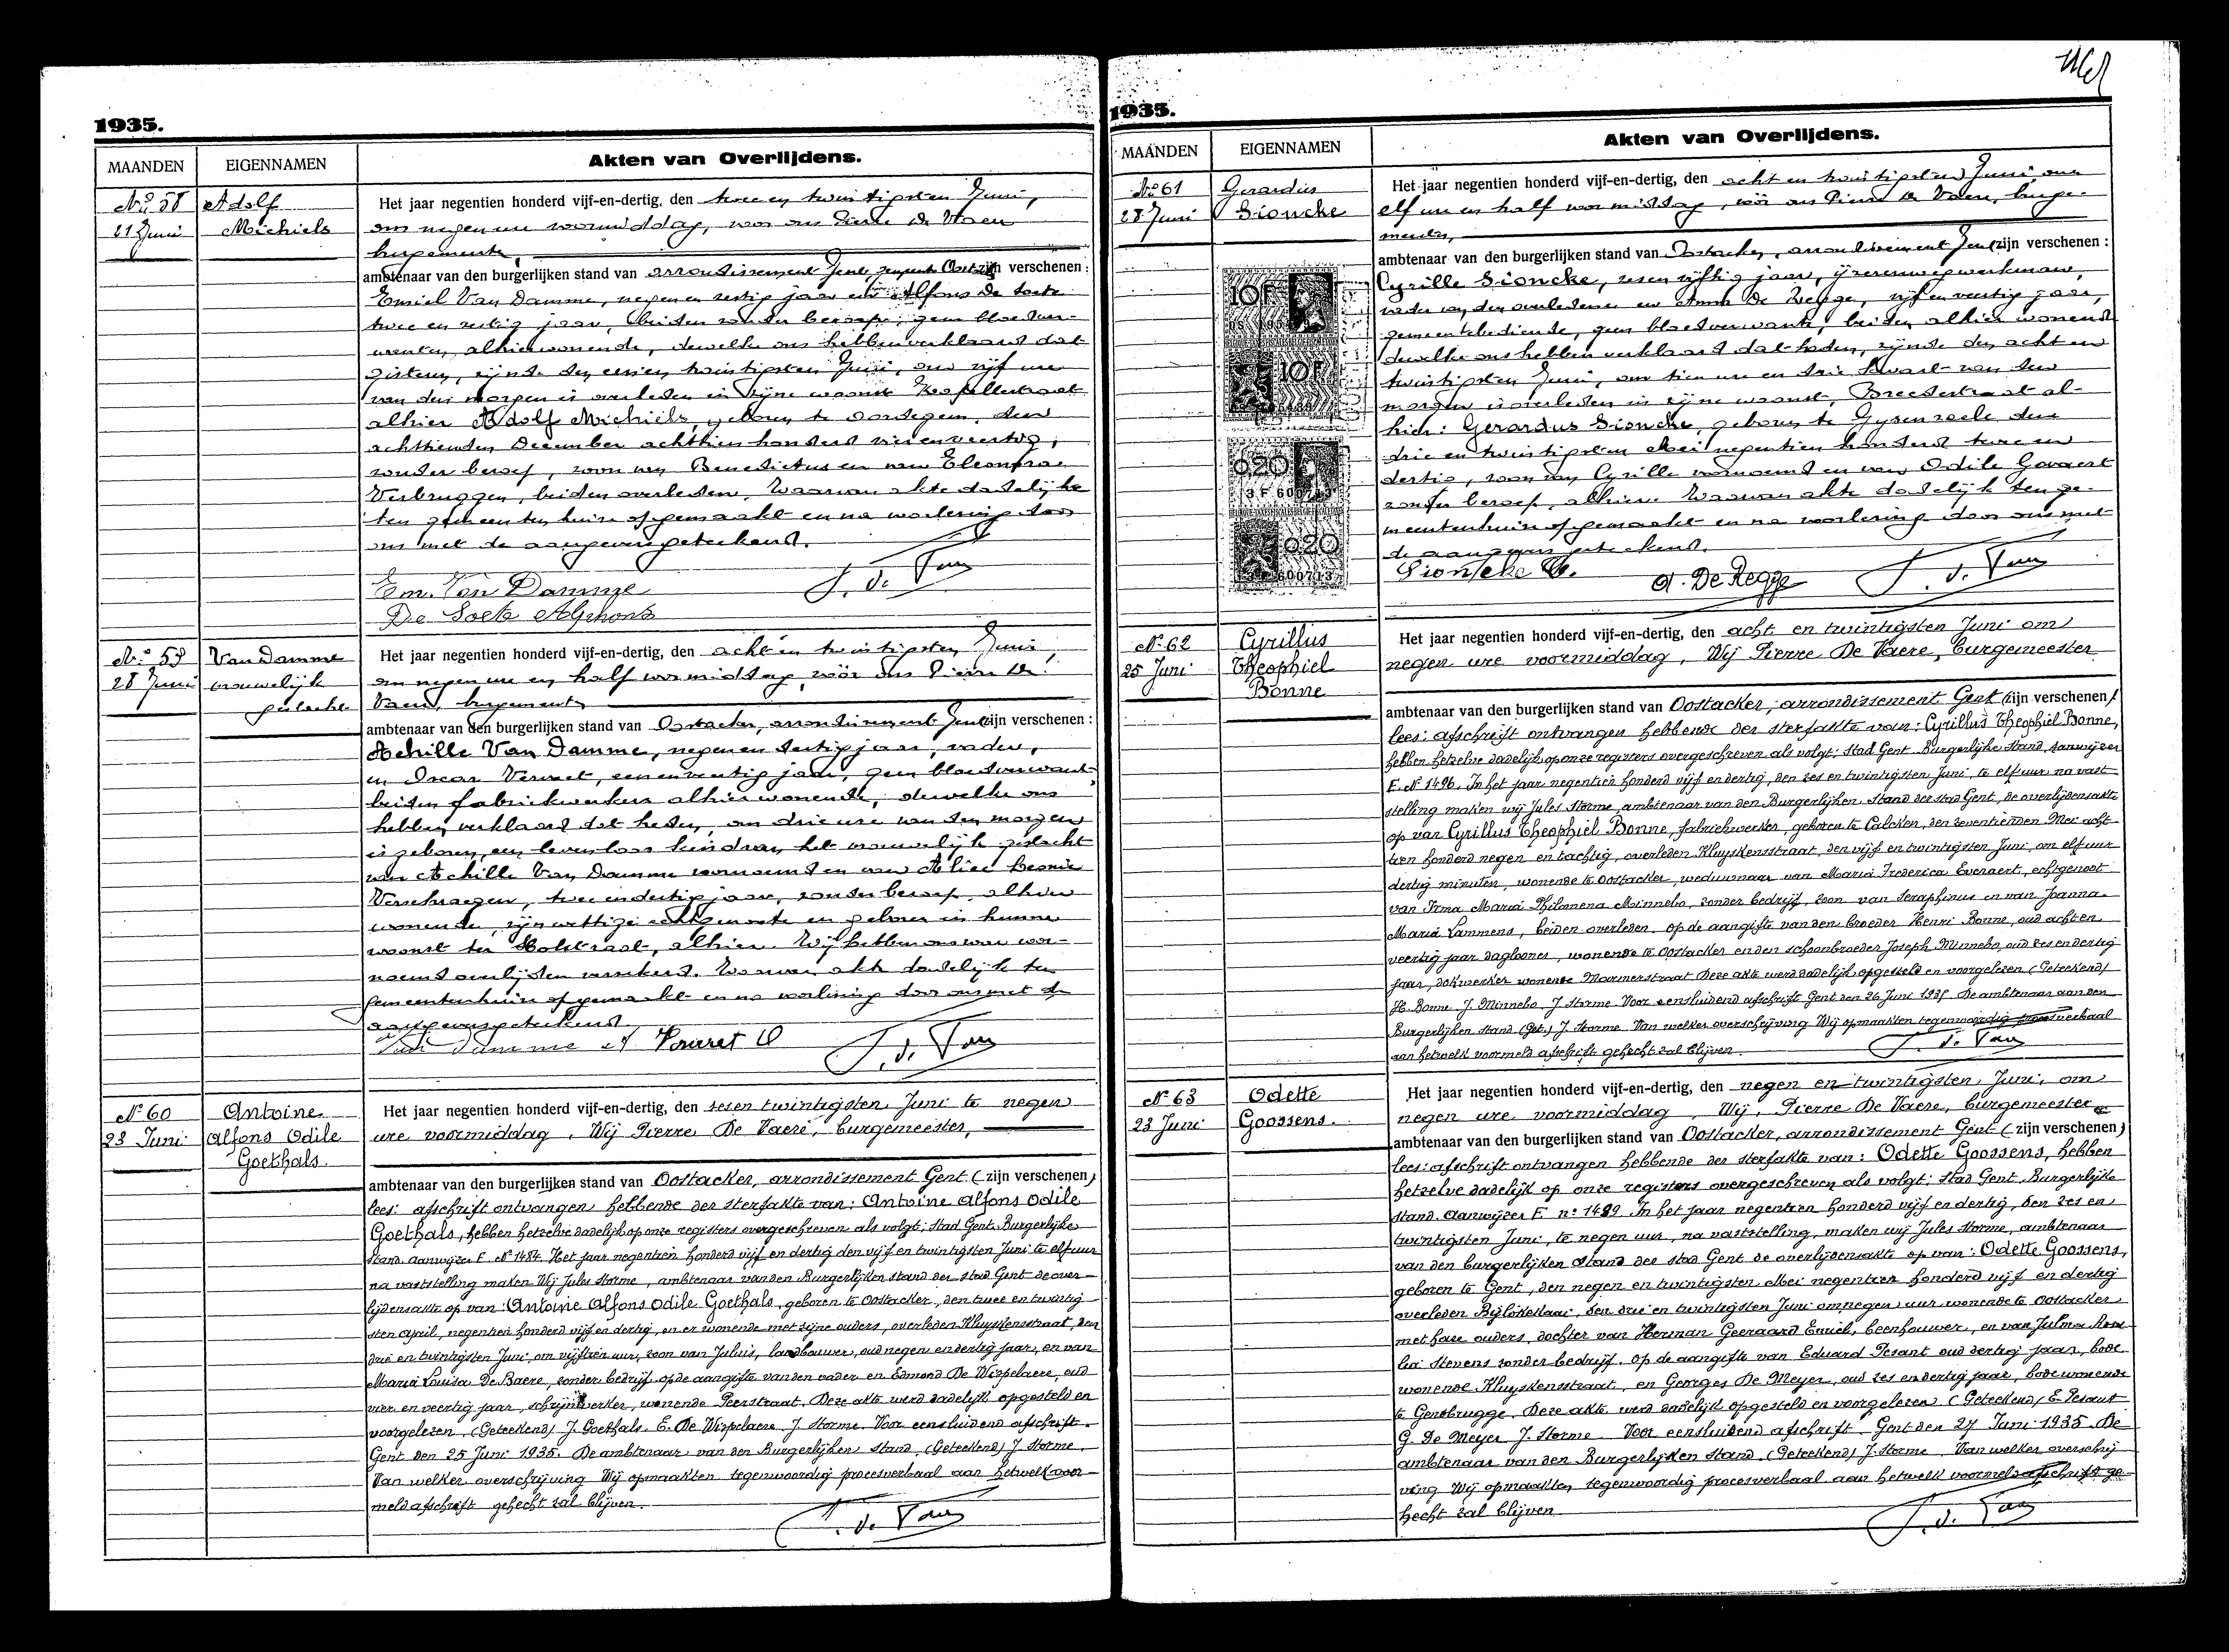 1935.
MAANDEN
EIGENNAMEN
Akten van Overlijdens.
No 58
21 Juni
Adolf
Michiels
Het jaar negentien honderd vijf-en-dertig, den twee en twintigsten Juni,
om negen ure voormiddag, voor ons Pierre De Vaere
burgemeester,
ambtenaar van den burgerlijken stand van arrondissement Gent, zijn verschenen :
Emiel Van Damme, negen en zestig jaar en Alfons De Soete
twee en zestig jaar, beiden zonder beroep, geen bloedver-
wanten, alhier wonende, dewelke ons hebben verklaard dat
gisteren, zijnde den een en twintigsten Juni, om vijf ure
van den morgen is overleden in zijne woonst Kapellestraat
alhier Adolf Michiels, geboren te Oordegem, den
achttienden December achttien honderd vier en veertig,
zonder beroep, zoon van Benedictus en van Eleonora
Verbruggen, beiden overleden. Waarvan akte dadelijk
ten gemeentenhuize opgemaakt en na voorlezing door
ons met de aangevers geteekend.
Em. Van Damme
De Soete Alphons
No 59
28 Juni
Van Damme
vrouwelijk
geslacht
Het jaar negentien honderd vijf-en-dertig, den acht en twintigsten Juni,
om negen ure en half voormiddag, vóór ons Pierre De
Vaere, burgemeester
ambtenaar van den burgerlijken stand van Oostacker, arrondissement Gent zijn verschenen :
Achille Van Damme, negen en dertig jaar, vader,
en Oscar Vervaet, een en veertig jaar, geen bloedverwant,
beiden fabriekwerkers alhier wonende, dewelke ons
hebben verklaard dat heden, om drie ure van den morgen
is geboren, een levenloos kind van het vrouwelijk geslacht
van Achille Van Damme voornoemd en van Alice Leonie
Verschraegen, twee en dertig jaar, zonder beroep, alhier
wonende, zijn wettige echtgenoote en geboren in hunne
woonst ter Holstraat, alhier. Wij hebben ons van voor-
noemd overlijden verzekerd. Waarvan akte dadelijk ten
gemeentenhuize opgemaakt en na voorlezing door ons met de
aangevers geteekend.
Van Damme A
No 60
23 Juni
Antoine
Alfons Odile
Goethals.
Het jaar negentien honderd vijf-en-dertig, den zes en twintigsten Juni te negen
ure voormiddag, Wij Pierre De Vaere, burgemeester,
ambtenaar van den burgerlijken stand van Oostacker, arrondissement Gent (zijn verschenen)
lees: afschrift ontvangen hebbende der sterfakte van: Antoine Alfons Odile
Goethals, hebben hetzelve dadelijk op onze registers overgeschreven als volgt: Stad Gent. Burgerlijke
stand. Aanwijzer F. No 1484. Het jaar negentien honderd vijf en dertig den vijf en twintigsten Juni te elf uur
na vaststelling maken Wij Jules Storme, ambtenaar van den Burgerlijken stand der stad Gent de over-
lijdensakte op van: Antoine Alfons Odile Goethals, geboren te Oostacker, den twee en twintig
sten April, negentien honderd vijf en dertig, en er wonende met zijne ouders, overleden Kluyskensstraat, den
drie en twintigsten Juni, om vijftien uur, zoon van Juluis, landbouwer, oud negen en dertig jaar, en van
Maria Louisa De Baere, zonder bedrijf op de aangifte van den vader en Edmond De Wispelaere, oud
vier en veertig jaar, schrijnwerker, wonende Peerstraat. Deze akte werd dadelijk opgesteld en
voorgelezen. (Geteekend) J. Goethals. E. De Wispelaere. J. Storme. Voor eensluidend afschrift.
Gent den 25 Juni 1935. De ambtenaar van den Burgerlijken stand. (Geteekend) J. Storme.
Van welker overschrijving Wij opmaakten tegenwoordig procesverbaal aan hetwelk voor-
meld afschrift gehecht zal blijven.
1935.
MAANDEN
EIGENNAMEN
Akten van Overlijdens.
No 61
28 Juni
Gerardus
Sioncke
Het jaar negentien honderd vijf-en-dertig, den acht en twintigsten Juni, om
elf ure en half voormiddag, vóór ons Pierre De Vaere, burge-
meester,
ambtenaar van den burgerlijken stand van Oostacker, arrondissement Gent zijn verschenen :
Cyrille Sioncke, zes en vijftig jaar, ijzerenwegwerkman,
vader van den overledene en Anna De Regge, vijf en veertig jaar,
gemeentebediende, geen bloedverwante, beiden alhier wonend
dewelke ons hebben verklaard dat heden, zijnde den acht en
twintigsten Juni, om tien ure en drie kwart van den
morgen is overleden in zijne woonst, Breedestraat al-
hier: Gerardus Sioncke, geboren te Gysenzeele den
drie en twintigsten Mei negentien honderd twee en
dertig, zoon van Cyrille voornoemd en van Odile Govaert
zonder beroep, alhier. Waarvan akte dadelijk ten ge-
meentenhuize opgemaakt en na voorlezing door ons met
de aangevers geteekend.
10F
10F
0.20
3 F 600713
0.20
3 F 600713
Sioncke C.
A. De Regge
No 62
25 Juni
Cyrillus
Theophiel
Bonne
Het jaar negentien honderd vijf-en-dertig, den acht en twintigsten Juni om
negen ure voormiddag, Wij Pierre De Vaere, burgemeester
ambtenaar van den burgerlijken stand van Oostacker, arrondissement Gent (zijn verschenen)
lees: afschrift ontvangen hebbende der sterfakte van: Cyrillus Theophiel Bonne,
hebben hetzelve dadelijk op onze registers overgeschreven als volgt: Stad Gent. Burgerlijke Stand, Aanwijzer
F. No 1496. In het jaar negentien honderd vijf en dertig, den zes en twintigsten Juni, te elf uur na vast-
stelling maken wij Jules Storme, ambtenaar van den Burgerlijken Stand der stad Gent, de overlijdensakte
op van Cyrillus Theophiel Bonne, fabriekwerker, geboren te Calcken, den zeventienden Mei acht-
tien honderd negen en tachtig, overleden Kluyskensstraat, den vijf en twintigsten Juni, om elf uur
dertig minuten, wonende te Oostacker, weduwnaar van Maria Frederica Everaert, echtgenoot
van Irma Maria Philomena Minnebo, zonder bedrijf, zoon van Seraphinus en van Joanna
Maria Lammens, beiden overleden. Op de aangifte van den broeder Henri Bonne, oud acht en
veertig jaar daglooner, wonende te Oostacker en den schoonbroeder Joseph Minnebo, oud zes en dertig
jaar, dokwerker wonende Marmerstraat Deze akte werd dadelijk opgesteld en voorgelezen (Geteekend)
H. Bonne. J. Minnebo. J. Storme. Voor eensluidend afschrift Gent den 26 Juni 1935. De ambtenaar van den
Burgerlijken stand (Get.) J. Storme. Van welker overschrijving Wij opmaakten tegenwoordig procesverbaal
aan hetwelk voormeld afschrift gehecht zal blijven.
No 63
23 Juni
Odette
Goossens.
Het jaar negentien honderd vijf-en-dertig, den negen en twintigsten Juni, om
negen ure voormiddag, Wij, Pierre De Vaere, burgemeester
ambtenaar van den burgerlijken stand van Oostacker, arrondissement Gent (zijn verschenen)
lees: afschrift ontvangen hebbende der sterfakte van: Odette Goossens, hebben
hetzelve dadelijk op onze registers overgeschreven als volgt: Stad Gent. Burgerlijke
stand. Aanwijzer F. no 1489 In het jaar negentien honderd vijf en dertig, den zes en
twintigsten Juni, te negen uur, na vaststelling, maken wij Jules Storme, ambtenaar
van den burgerlijken stand der stad Gent de overlijdensakte op van: Odette Goossens,
geboren te Gent, den negen en twintigsten Mei negentien honderd vijf en dertig
overleden Bijlokekaai, den drie en twintigsten Juni om negen uur wonende te Oostacker
met hare ouders, dochter van Herman Geeraard Emiel, beenhouwer, en van Julma
Stevens zonder bedrijf. Op de aangifte van Eduard Pesant oud dertig jaar, bode
wonende Kluyskensstraat, en Georges De Meyer, oud zes en dertig jaar, bode wonende
te Gentbrugge. Deze akte werd dadelijk opgesteld en voorgelezen (Geteekend) E. Pesant
G. De Meyer J. Storme. Voor eensluidend afschrift. Gent den 27 Juni 1935. De
ambtenaar van den Burgerlijken Stand. (Geteekend) J. Storme. Van welker overschrij
ving Wij opmaakten tegenwoordig procesverbaal aan hetwelk voormeld afschrift ge-
hecht zal blijven